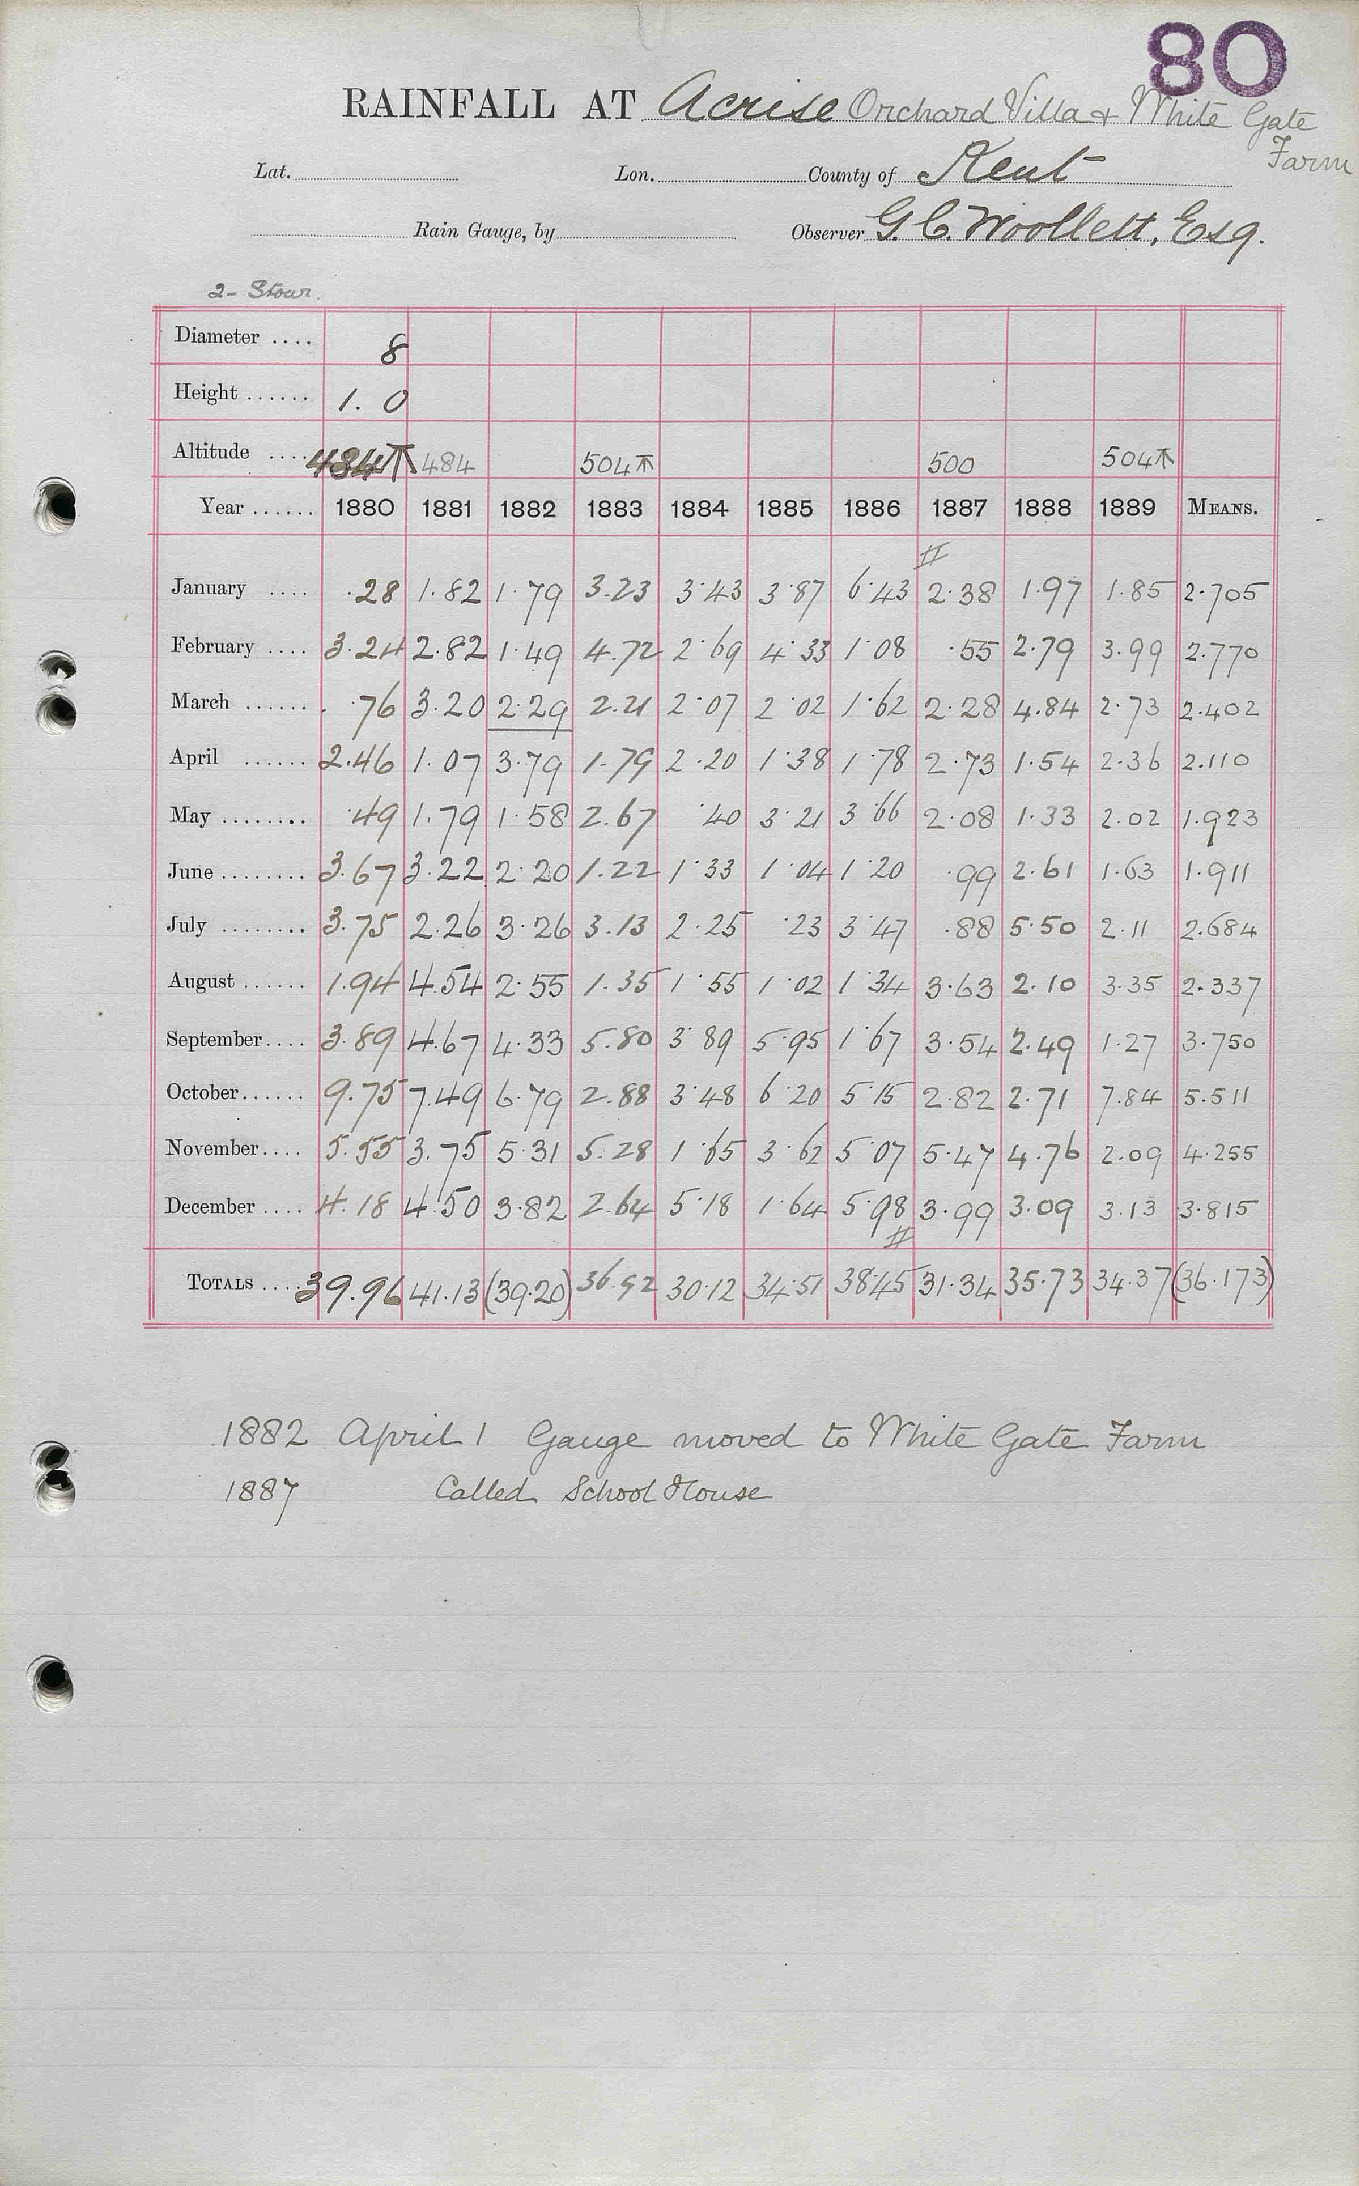 80
RAINFALL AT Acrise Orchard Villa & White Gate Farm
Lat. Lon. County of Kent
Rain Gauge, by Observer G. C. Woollett, Esq.
2- Stour.
Diameter .... 8
Height ...... 1. 0
Altitude .... 484 484 504 500 504
Year ...... 1880 1881 1882 1883 1884 1885 1886 1887 1888 1889 MEANS.
January .... .28 1.82 1.79 3.23 3.43 3.87 6.43 2.38 1.97 1.85 2.705
February .... 3.24 2.82 1.49 4.72 2.69 4.33 1.08 .55 2.79 3.99 2.770
March ...... .76 3.20 2.29 2.21 2.07 2.02 1.62 2.28 4.84 2.73 2.402
April ...... 2.46 1.07 3.79 1.79 2.20 1.38 1.78 2.73 1.54 2.36 2.110
May ........ .49 1.79 1.58 2.67 .40 3.21 3.66 2.08 1.33 2.02 1.923
June ........ 3.67 3.22 2.20 1.22 1.33 1.04 1.20 .99 2.61 1.63 1.911
July ........ 3.75 2.26 3.26 3.13 2.25 .23 3.47 .88 5.50 2.11 2.684
August ...... 1.94 4.54 2.55 1.35 1.55 1.02 1.34 3.63 2.10 3.35 2.337
September .... 3.89 4.67 4.33 5.80 3.89 5.95 1.67 3.54 2.49 1.27 3.750
October ...... 9.75 7.49 6.79 2.88 3.48 6.20 5.15 2.82 2.71 7.84 5.511
November .... 5.55 3.75 5.31 5.28 1.65 3.62 5.07 5.47 4.76 2.09 4.255
December .... 4.18 4.50 3.82 2.64 5.18 1.64 5.98 3.99 3.09 3.13 3.815
TOTALS .... 39.96 41.13 (39.20) 36.92 30.12 34.51 38.45 31.34 35.73 34.37 (36.173)
1882 April 1 Gauge moved to White Gate Farm
1887 Called School House